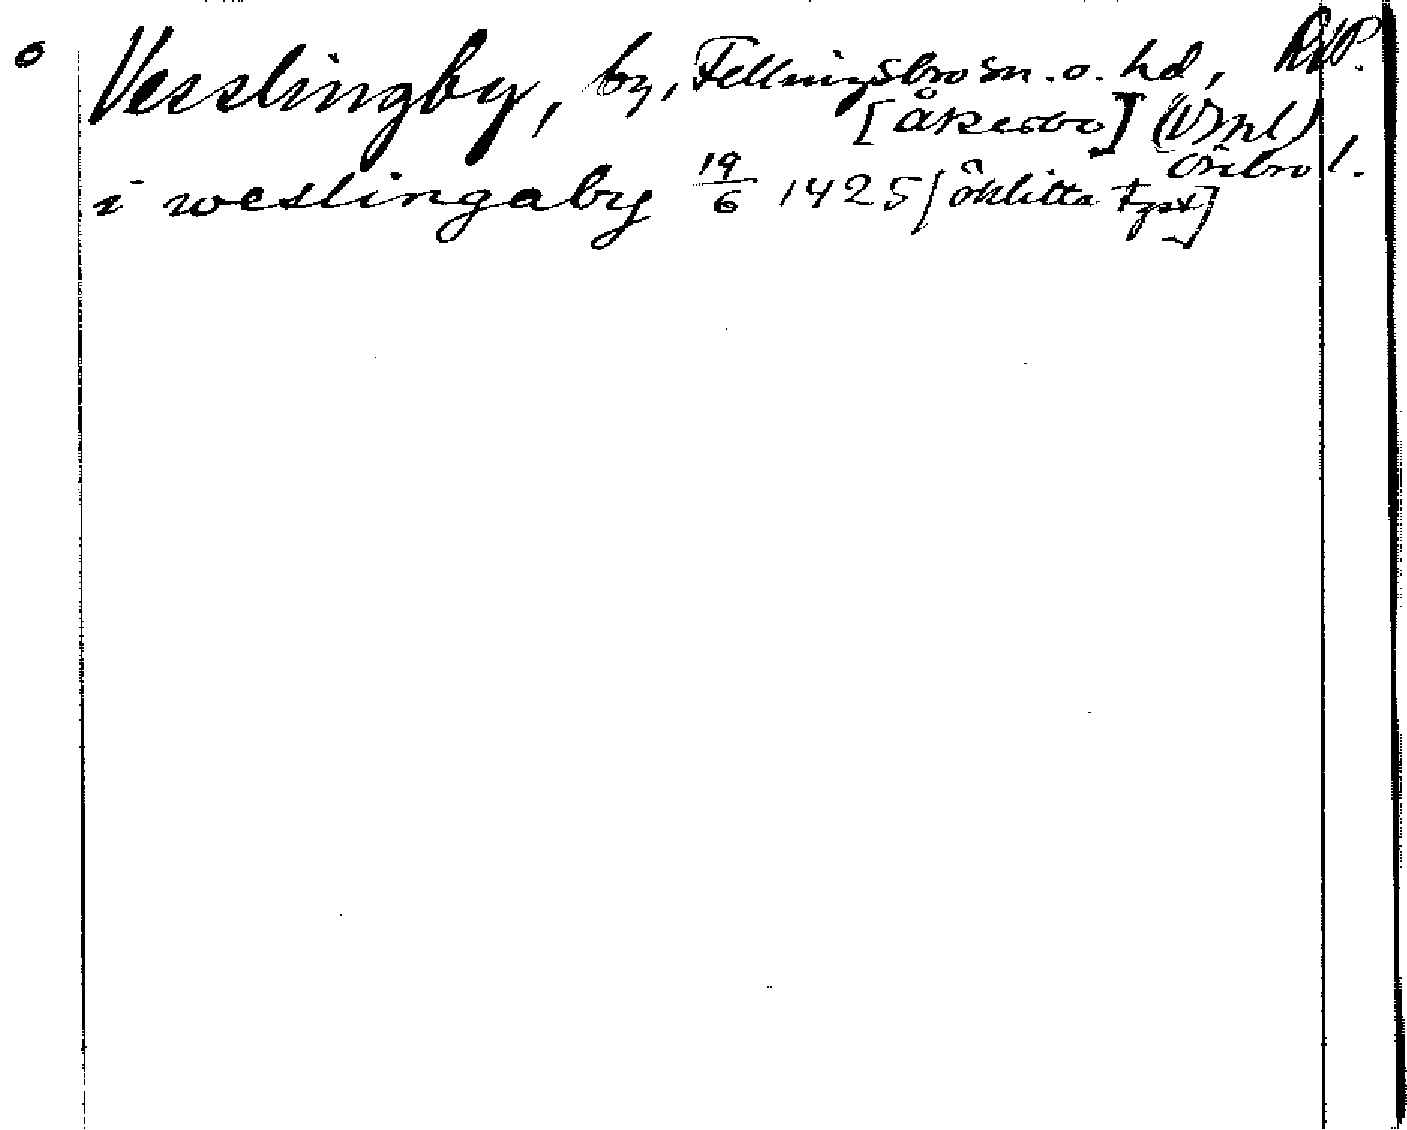 Vesslingby, by, Fellingsbro sn. o. hd, RAP.
[Åkerbo] (Vsml)
Örebro l.
i weslingaby 19/6 1425 [örklitta Fgst]